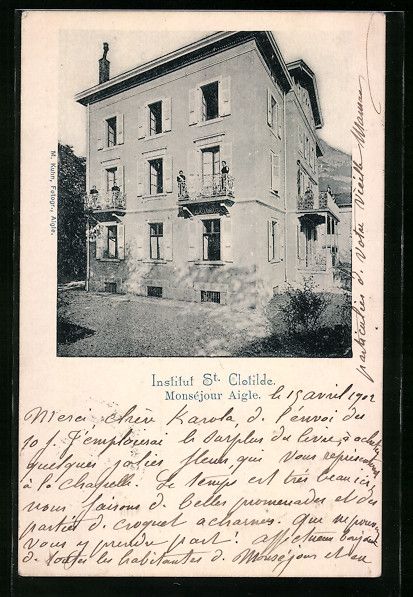 M. Kuhn, Fotogr., Aigle.
Institut St. Clotilde.
Monséjour Aigle.
le 15 avril 1902
Merci chère Karola, d. l'envoi du
10 f. J'emploierai le surplus du livre, à achet
quelques jolies fleurs, qui vous représent
à la Chapelle. Le temps est très beau ici,
nous faisons de belles promenades et des
parties de croquet acharnées. Que ne pouv.
vous y prendre part! affectueux
de toutes les habitantes de Monséjour et en
particulier d. votre vieille